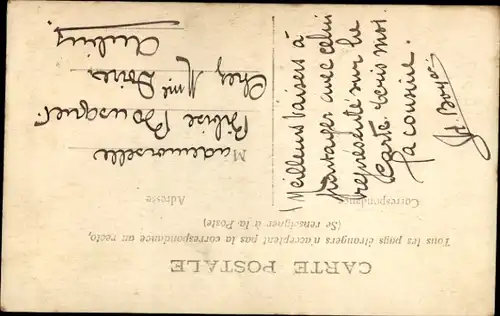 CARTE POSTALE
Tous les pays étrangers n'acceptent pas la correspondance au recto,
(Se renseigner à la Poste)
Correspondance
Adresse
Meilleurs baisers à
partager avec celui
représenté sur la
carte. Suis moi
ta cousine.
Mademoiselle
Bousquet
Chez Mme
Aubin